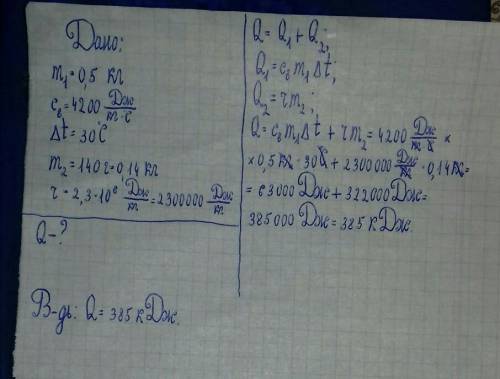 Дано:
m₁=0,5 кг
cв=4200 Дж/кг·°C
Δt=30°C
m₂=140 г=0,14 кг
r=2,3·10⁶ Дж/кг=2300000 Дж/кг
Q-?
В-дь: Q=385 кДж.
Q=Q₁+Q₂;
Q₁=cв m₁ Δt;
Q₂=rm₂;
Q=cв m₁ Δt + rm₂=4200 Дж/кг·°C ×
×0,5 кг·30°C+2300000 Дж/кг·0,14кг=
=63000 Дж+322000 Дж=
385000 Дж=385 кДж